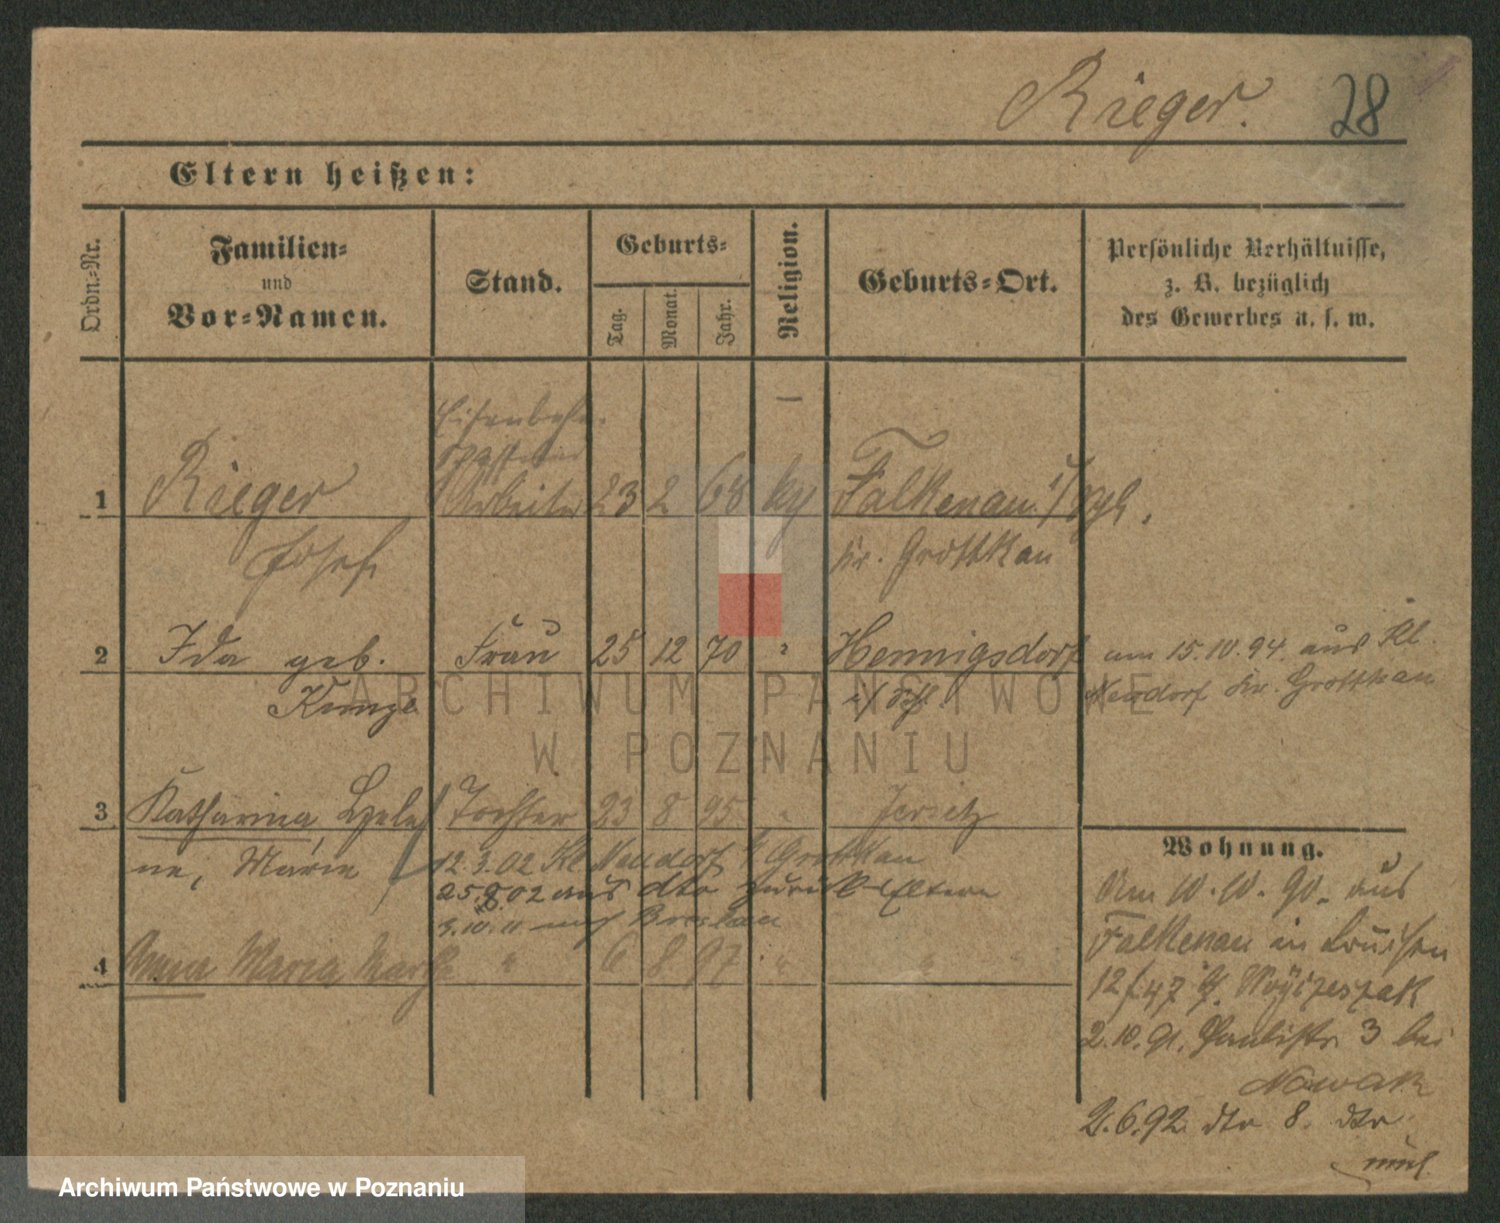 Rieger. 28
Eltern heißen:
Ordn.-Nr.
Familien-
und
Vor-Namen.
Stand.
Geburts-
Tag.
Monat.
Jahr.
Religion.
Geburts-Ort.
Persönliche Verhältnisse,
z. B. bezüglich
des Gewerbes u. s. w.
Eisenbahn-
1 Rieger Arbeiter 23 2 68 Falkenau
Josef Kr. Grottkau
2 Ida geb. Frau 25 12 70 Hennigsdorf am 15.10.94. aus Kl.
Kunze Neudorf Kr. Grottkau
3 Katharina, Hele Tochter 23 8 95 Jersitz
ne, Marie 12.3.02 Kl Neudorf Grottkau
25.8.02 aus dto zurück Eltern
nach Breslau
4 Anna Maria Martha " 6 8 97 " "
Wohnung.
Am 10.10.90. aus
Falkenau in Luisen
12
2.10.91. Paulistr. 3 bei
Nowak
2.6.92. dto 8. dto
ARCHIWUM PAŃSTWOWE
W POZNANIU
Archiwum Państwowe w Poznaniu